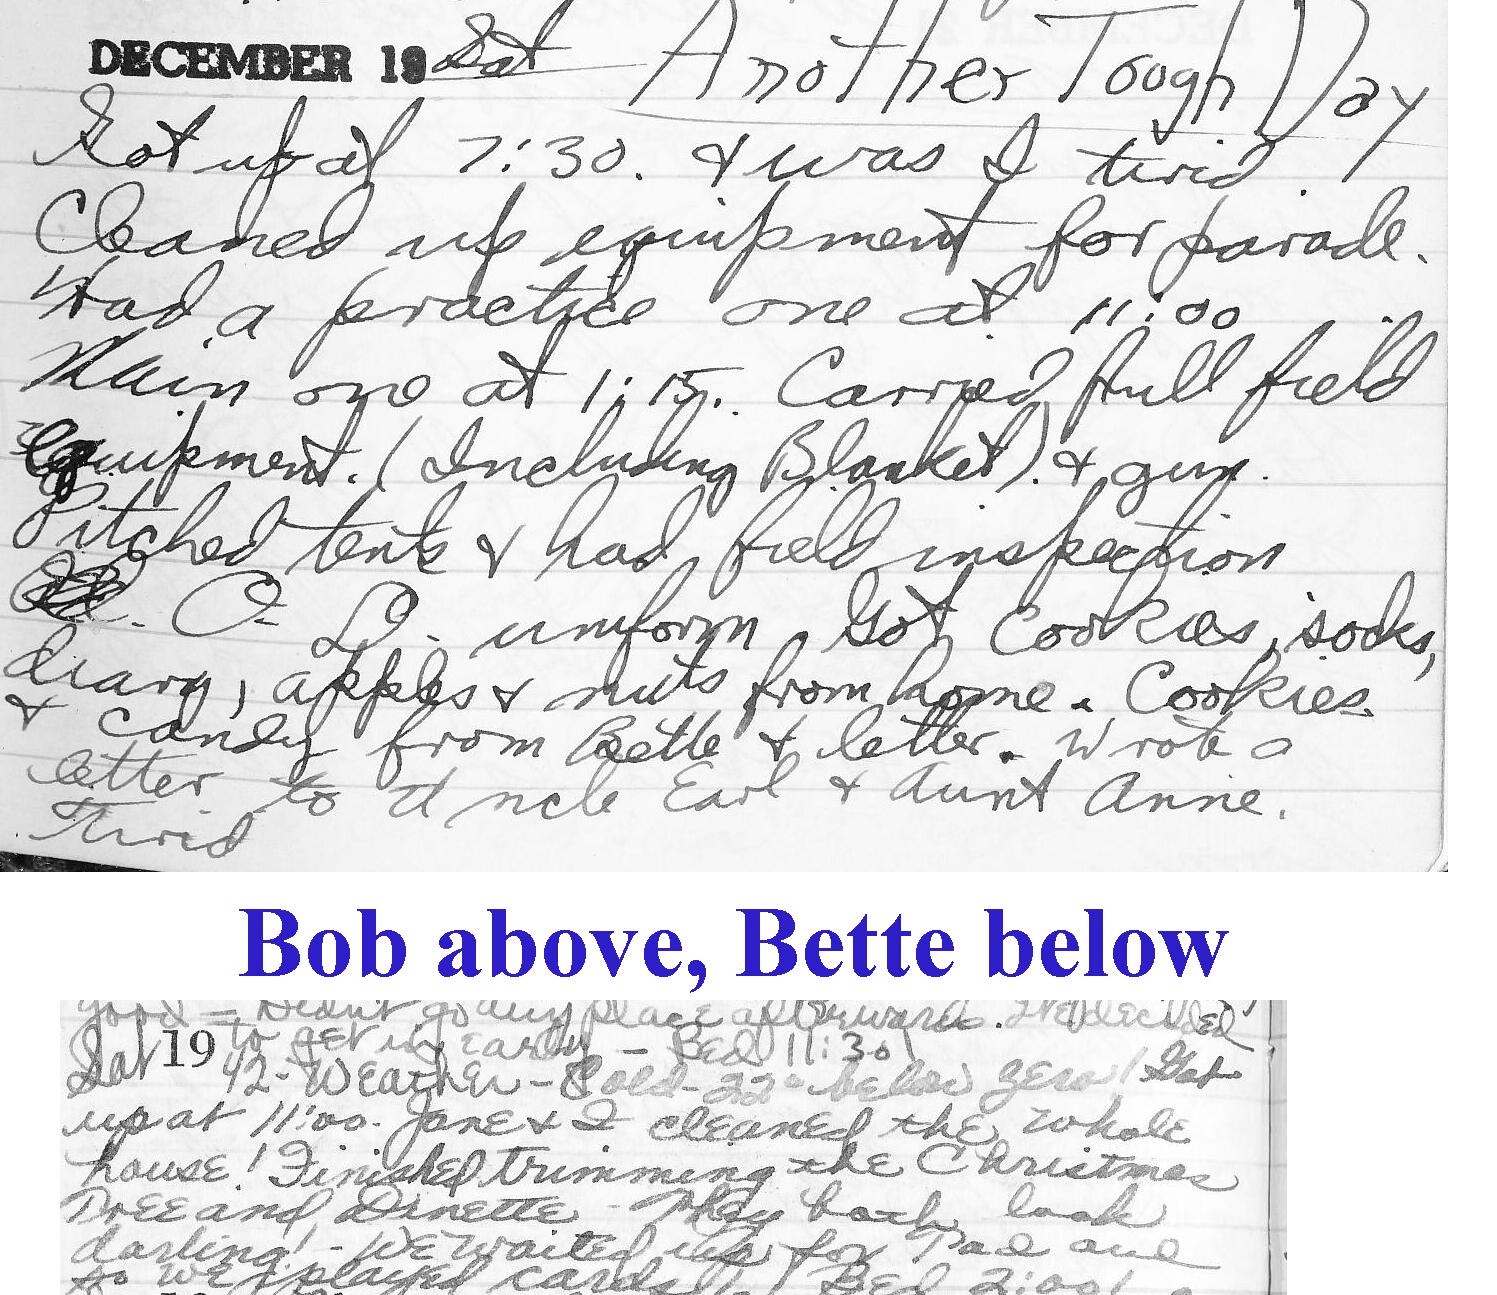 DECEMBER 19 Sat Another Tough Day
Got up at 7:30. & was I tirid.
Cleaned up equipment for parade.
Had a practice one at 11:00
Main one at 1:15. Carried full field
equipment. (Including Blanket) & gun.
Pitched tents & had field inspection
O. D. uniform Got Cookies, socks,
diary, apples & nuts from home. Cookies
& candy from Bette & letter. Wrote a
letter to Uncle Earl & Aunt Anne.
Tirid
Bob above, Bette below
good - Didn't go any place afterwards. We decided
to get in early - Bed 11:30
Sat 19 42 - Weather - Cold - 22° below zero! Got
up at 11:00. Jane & I cleaned the whole
house! Finished trimming the Christmas
Tree and Dinette - They both look
darling! - We waited up for Dad and
so we played cards! Bed 2:00!